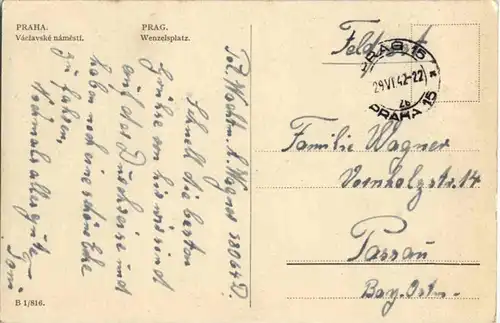 PRAHA.
Václavské náměstí.
PRAG.
Wenzelsplatz.
Pol. Wachtm. A. Wagner 38064 D.
Schnell die besten
Grüsse von hier wir sind
auf der Durchreise und
haben noch eine schöne Ecke
zu fahren.
Nochmals alles gute
Toni
B 1/816.
Feldpost
PRAG 15
29 VI 42-22
2b
PRAHA 15
Familie Wagner
Vornholzstr. 14
Passau
Bay. Ostm.